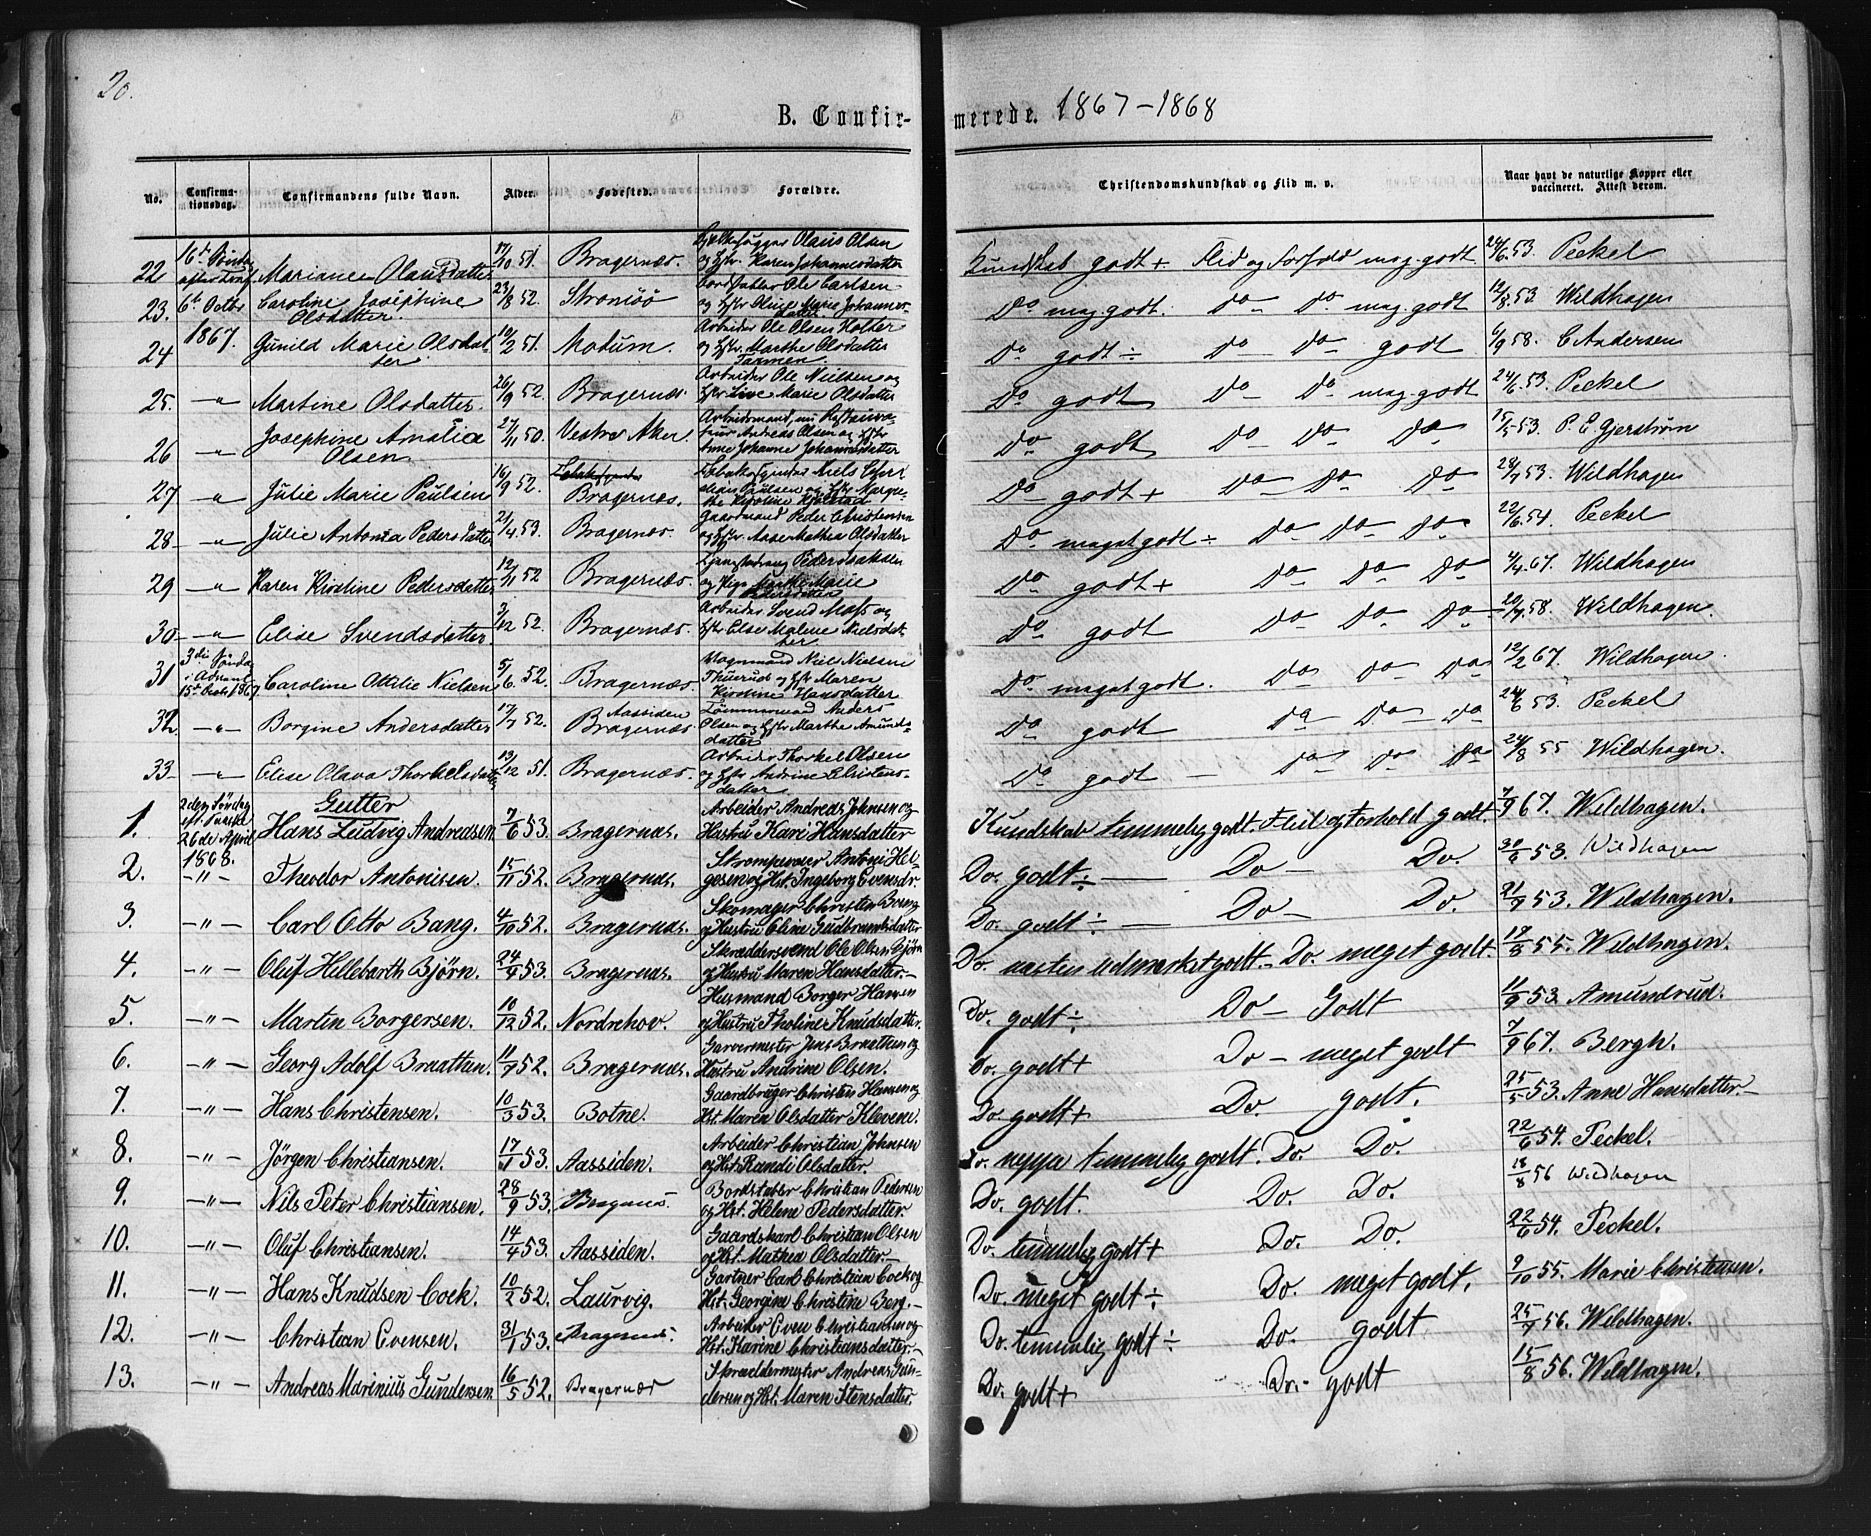 20.
B. Confirmerede. 1867-1868
No. Confirmationsdag. Confirmandens fulde Navn. Alder. Fødested. Forældre. Christendomskundskab og Flid m. v. Naar havt de naturlige Kopper eller vaccineret. Attest derom.
22 16de Søndag efter Trinit. Mariane Olausdatter 17/10 51. Bragernæs. Olaus Olsen og Hstr. Karen Johannesdatter Kundskab godt + Flid og Forhold meg. godt 24/6 53. Peckel
23. 6te Octbr Caroline Josephine Olsdatter 23/8 52. Strømsö Bordstabler Ole Carlsen og Hstr Oline Marie Johannesdatter Do meg. godt. Do Do meg godt 12/8 53. Wildhagen
24 1867. Gunild Marie Olsdatter 10/2 51. Modum. Arbeider Ole Olsen Holter og Hstr. Marthe Olsdatter Do godt ÷ Do Do godt 6/9 58. C Andersen
25. -"- Martine Olsdatter. 26/9 52. Bragernæs. Arbeider Ole Nielsen og Hstr Live Marie Olsdatter Do godt Do Do meg godt 24/6 53. Peckel
26 -"- Josephine Amalia Olsen 27/11 50. Vestre Aker. Arbeidsmand, nu Andreas Olsen og Hstr Anne Johanne Johannesdatter Do godt Do Do Do 15/5 53. P. E. Gjerstrøm
27 -"- Julie Marie Paulsen 16/9 52. Bragernæs. Niels Christian Paulsen og Hstr Kirstine Do godt + Do Do Do 28/7 53. Wildhagen
28 -"- Julie Antonia Pedersdatter 21/4 53. Bragernæs. Gaardmand Peder Christensen og Hstr. Aase Mathea Olsdatter Do meget godt ÷ Do Do Do 22/6 54. Peckel
29 -"- Karen Kirstine Pedersdatter 12/11 52 Bragernæs. Peder Isaksen og Pige Marthe Marie Do godt + Do Do Do 4/4 67. Wildhagen
30 -"- Elise Svendsdatter 3/12 52. Bragernæs. Arbeider Svend Moss og Hstr Else Malene Nielsdatter Do godt Do Do Do 20/7 58. Wildhagen.
31 3die Søndag i Advent 15de Decbr 1867 Caroline Ottilie Nielsen 5/6 52. Bragernæs. Vognmand Niels Nielsen Thuerud og Hstr Maren Kirstine Hansdatter Do meget godt. Do Do Do 12/2 67. Wildhagen.
32 -"- Borgine Andersdatter 17/7 52. Aassiden Bragernæs Tömmermand Anders Olsen og Hstr Marthe Amundsdatter Do godt Do Do Do 24/6 53. Peckel
33 -"- Elise Olava Thorkelsdatter 13/12 51. Bragernæs. Arbeider Thorkel Olsen og Hstr Andrine Christensdatter Do godt Do Do Do 24/8 55 Wildhagen.
Gutter
1. 2den Søndag eft. Paaske 26de April 1868. Hans Ludvig Andreasen 7/6 53. Bragernæs. Arbeider Andreas Johnsen og Hustru Kari Hansdatter Kundskab temmelig godt. Flid og Forhold godt. 7/9 67. Wildhagen.
2. -"- Theodor Antonisen. 15/11 52. Bragernæs. Antoni Helgesen og Hst. Ingeborg Evensdr. Do. godt ÷ Do - Do. 30/6 53. Wildhagen
3. -"- Carl Otto Bang. 4/10 52. Bragernæs. Skomager Christen Bang og Hustru Eline Gudbrandsdatter Do. godt ÷ Do - Do. 21/9 53. Wildhagen.
4. -"- Oluf Hillebarth Björn. 24/9 53. Bragernæs. Skræddersvend Ole Olsen Björn og Hustru Maren Hansdatter. Do. næsten udmærket godt. Do. meget godt. 17/8 55. Wildhagen.
5. -"- Martin Borgersen. 10/12 52. Nordrehov. Husmand Borger Hansen og Hustru Tholine Knudsdatter. Do. godt ÷ Do - Godt 11/9 53. Amundrud.
6. -"- Georg Adolf Braathen. 11/7 52. Bragernæs. Garvermester Jens Braathen og Hustru Andrine Olsen. Do. godt + Do - meget godt 7/9 67. Bergh.
7. -"- Hans Christensen. 10/3 53. Botne. Gaardbruger Christen Hansen og Hst. Maren Olsdatter Klevene. Do. godt + Do. godt. 25/5 53. Anne Hansdatter.
8. -"- Jörgen Christiansen. 17/11 53. Aassiden. Arbeider Christian Johnsen og Hst. Randi Olsdatter. Do. neppe temmelig godt. Do. Do. 22/6 54. Peckel.
9. -"- Nils Peter Christiansen. 28/9 53. Bragernæs. Bordstabler Christian Pedersen og Hst. Helene Pedersdatter Do. godt. Do. Do. 18/8 56 Wildhagen
10. -"- Oluf Christiansen. 14/4 53. Aassiden. Gaardskarl Christian Olsen og Hst. Mathea Olsdatter Do. temmelig godt + Do. Do. 22/6 54. Peckel.
11. -"- Hans Knudsen Cock. 10/2 52. Laurvig. Gartner Carl Christian Cock og Hst. Georgine Christine Berg. Do. meget godt ÷ Do. meget godt. 9/10 55. Marie Christensen.
12. -"- Christian Evensen. 31/1 53. Bragernæs. Arbeider Even Christiansen og Hst. Karine Christiansdatter. Do. temmelig godt ÷ Do. godt 25/7 56. Wildhagen.
13. -"- Andreas Marinius Gundersen 16/5 52. Bragernæs Andreas Gundersen og Hst. Maren Stensdatter. Do. godt + Do. - godt 15/8 56. Wildhagen.